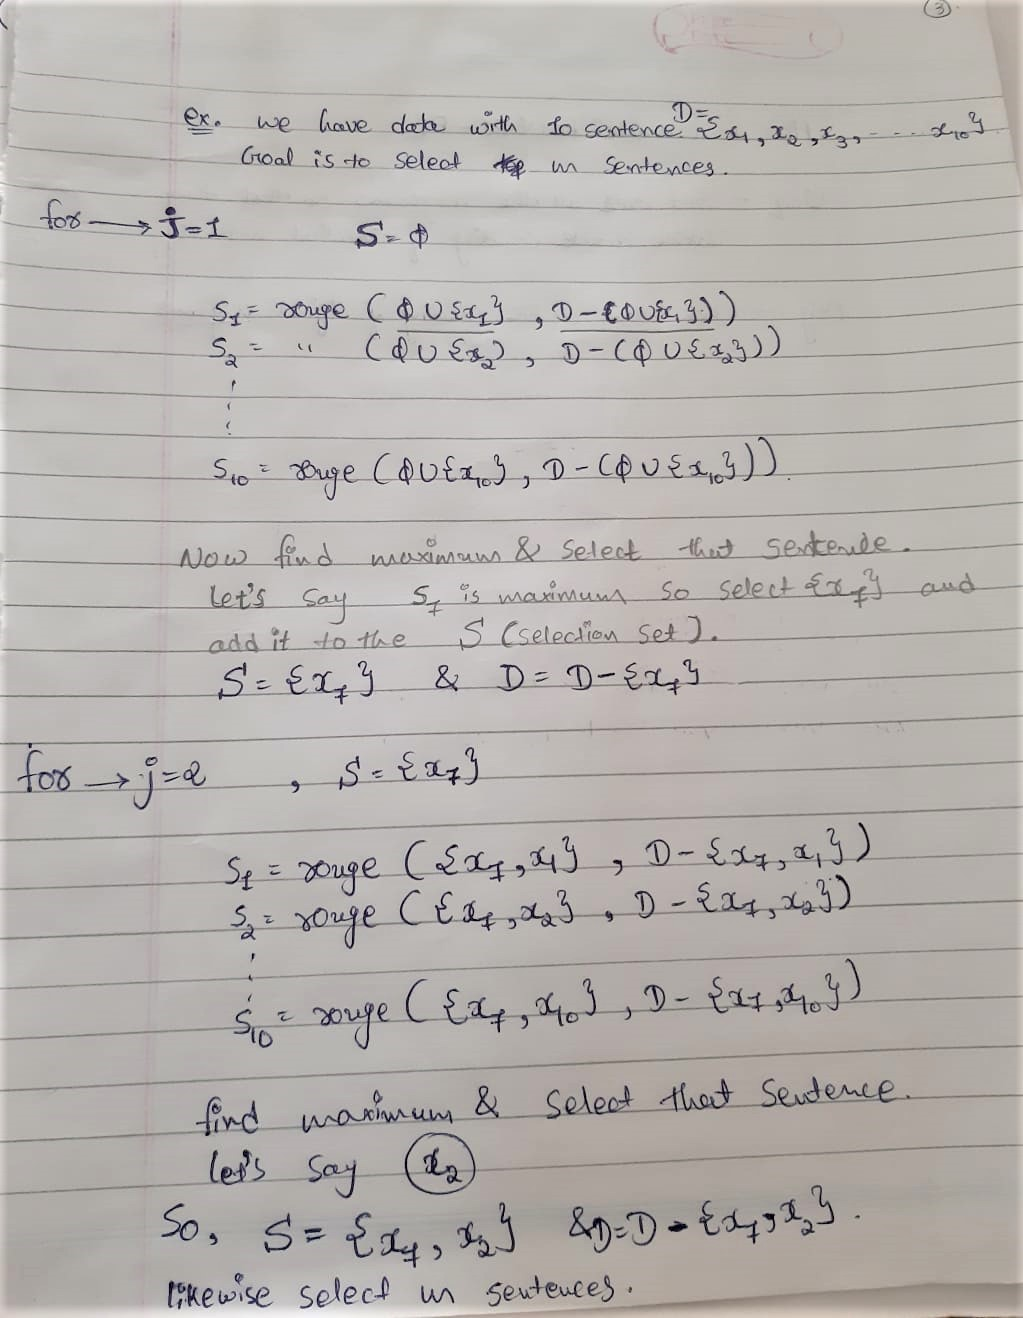 3
ex. we have data with 10 sentence D= {x1, x2, x3, ---- x10}
Goal is to select m sentences.
for → j=1 S=ϕ
S1 = rouge (ϕ∪{x1}, D-(ϕ∪{x1}))
S2 = " (ϕ∪{x2}, D-(ϕ∪{x2}))
S10 = rouge (ϕ∪{x10}, D-(ϕ∪{x10})).
Now find maximum & select that sentence.
let's say S7 is maximum so select {x7} and
add it to the S (selection set).
S={x7} & D= D-{x7}
for → j=2 , S={x7}
S1 = rouge ({x7, x1}, D-{x7, x1})
S2 = rouge ({x7, x2}, D-{x7, x2})
S10 = rouge ({x7, x10}, D-{x7, x10})
find maximum & select that sentence.
let's say x2
So, S= {x7, x2} & D=D-{x7, x2}.
likewise select m sentences.